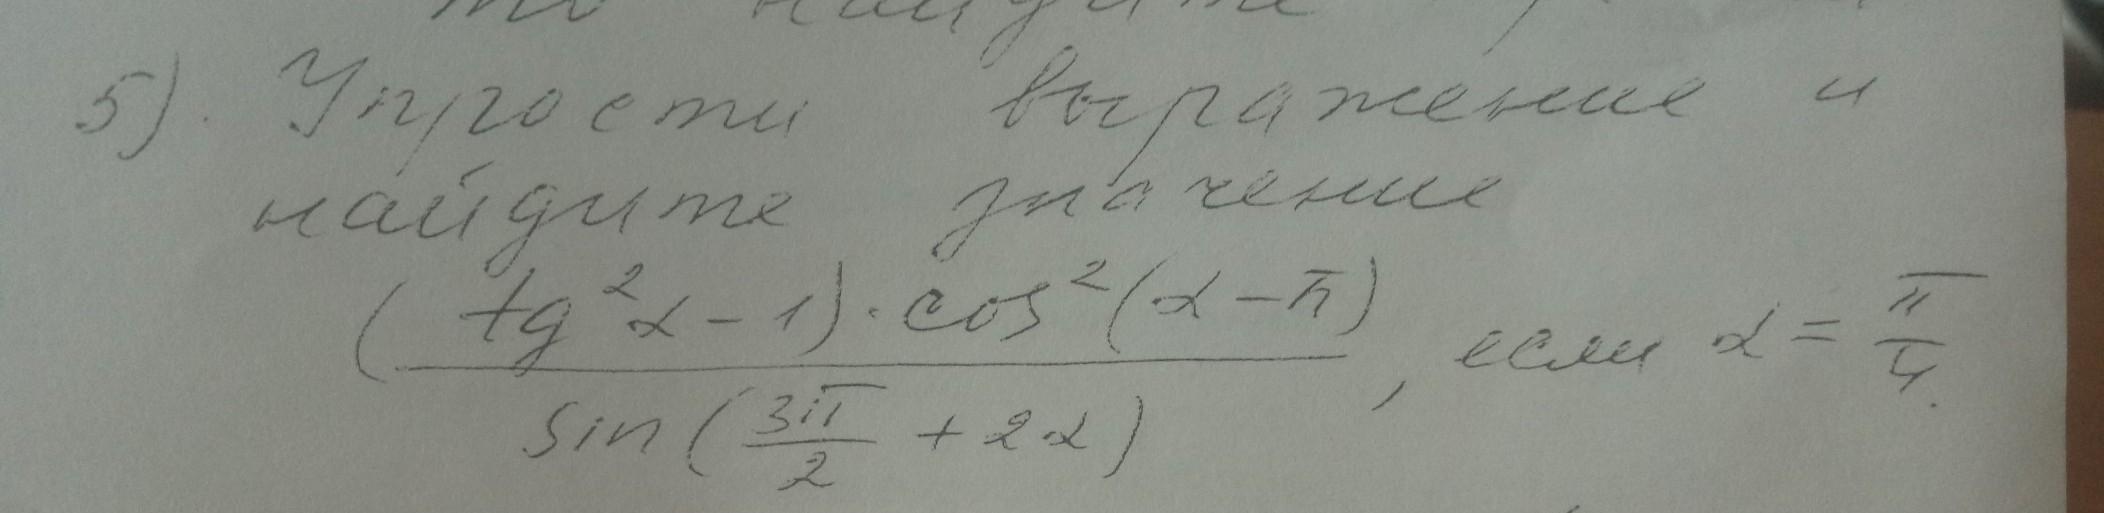 то найдите
5). Упрости выражение и
найдите значение
(tg²α-1)·cos²(α-π)
/
sin(3π/2 +2α)
, если α = π/4.